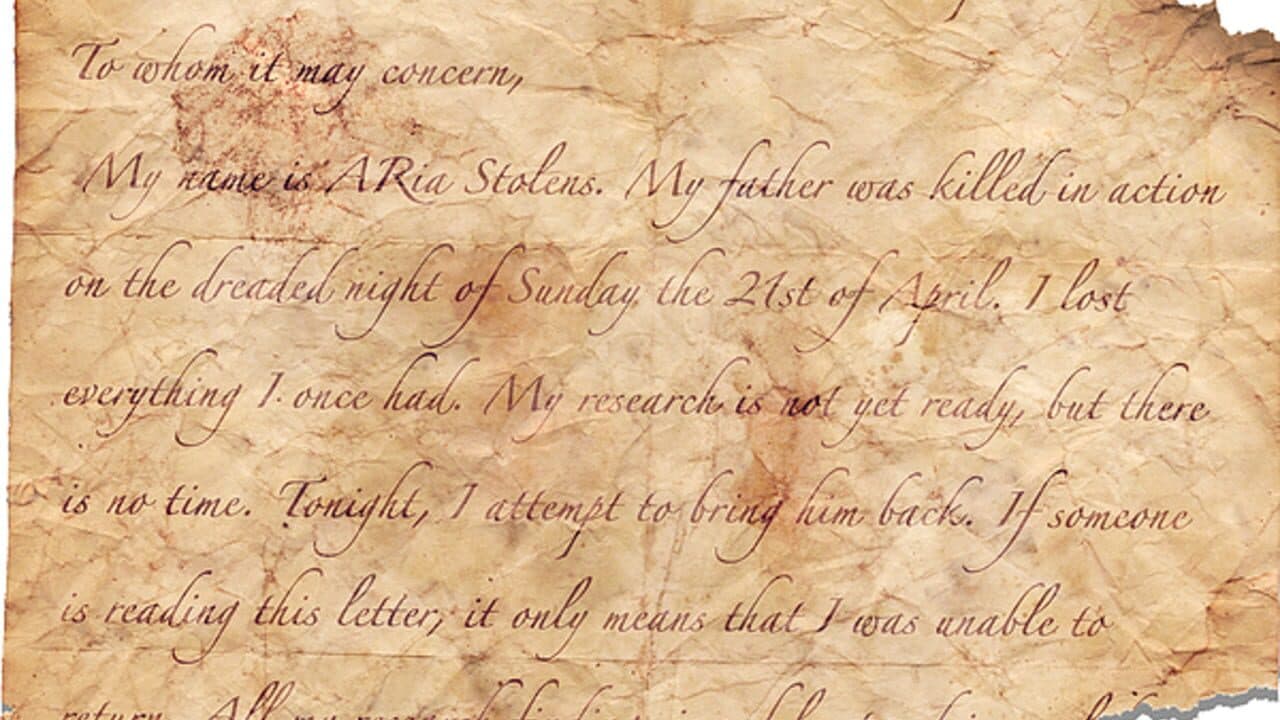 To whom it may concern,
My name is ARia Stolens. My father was killed in action
on the dreaded night of Sunday the 21st of April. I lost
everything I once had. My research is not yet ready, but there
is no time. Tonight, I attempt to bring him back. If someone
is reading this letter, it only means that I was unable to
return. All my research